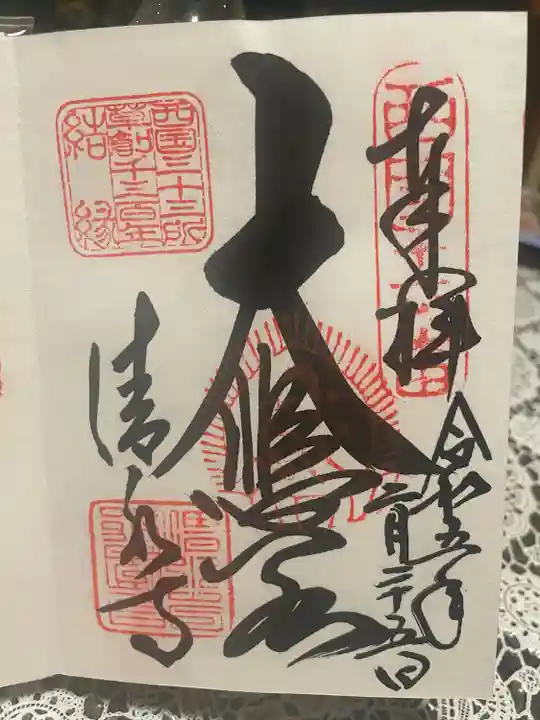 奉拝
令和五年
二月二十五日
大悲閣
西国三十三所
草創千三百年
結縁
清水寺